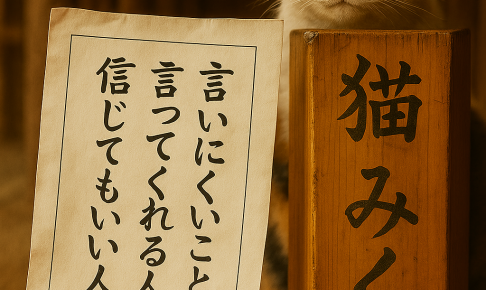 言いにくいこと
言ってくれる人
信じてもいい人
猫みく